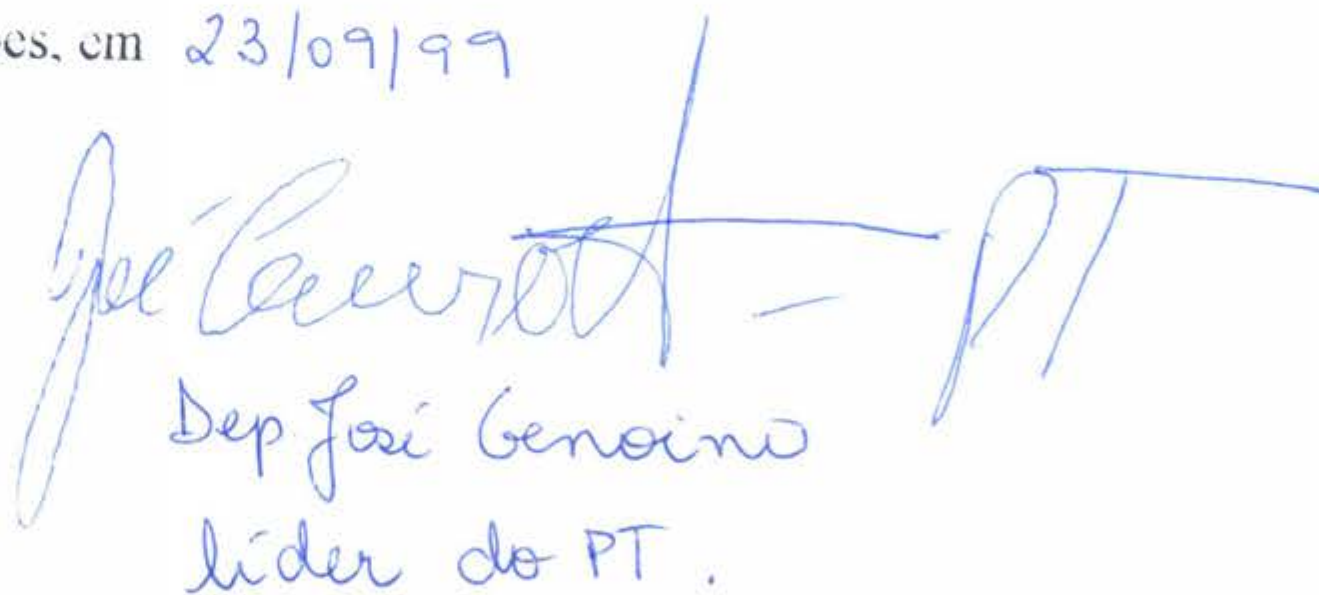 ões, em 23/09/99
José – PT
Dep José Genoino
líder do PT.